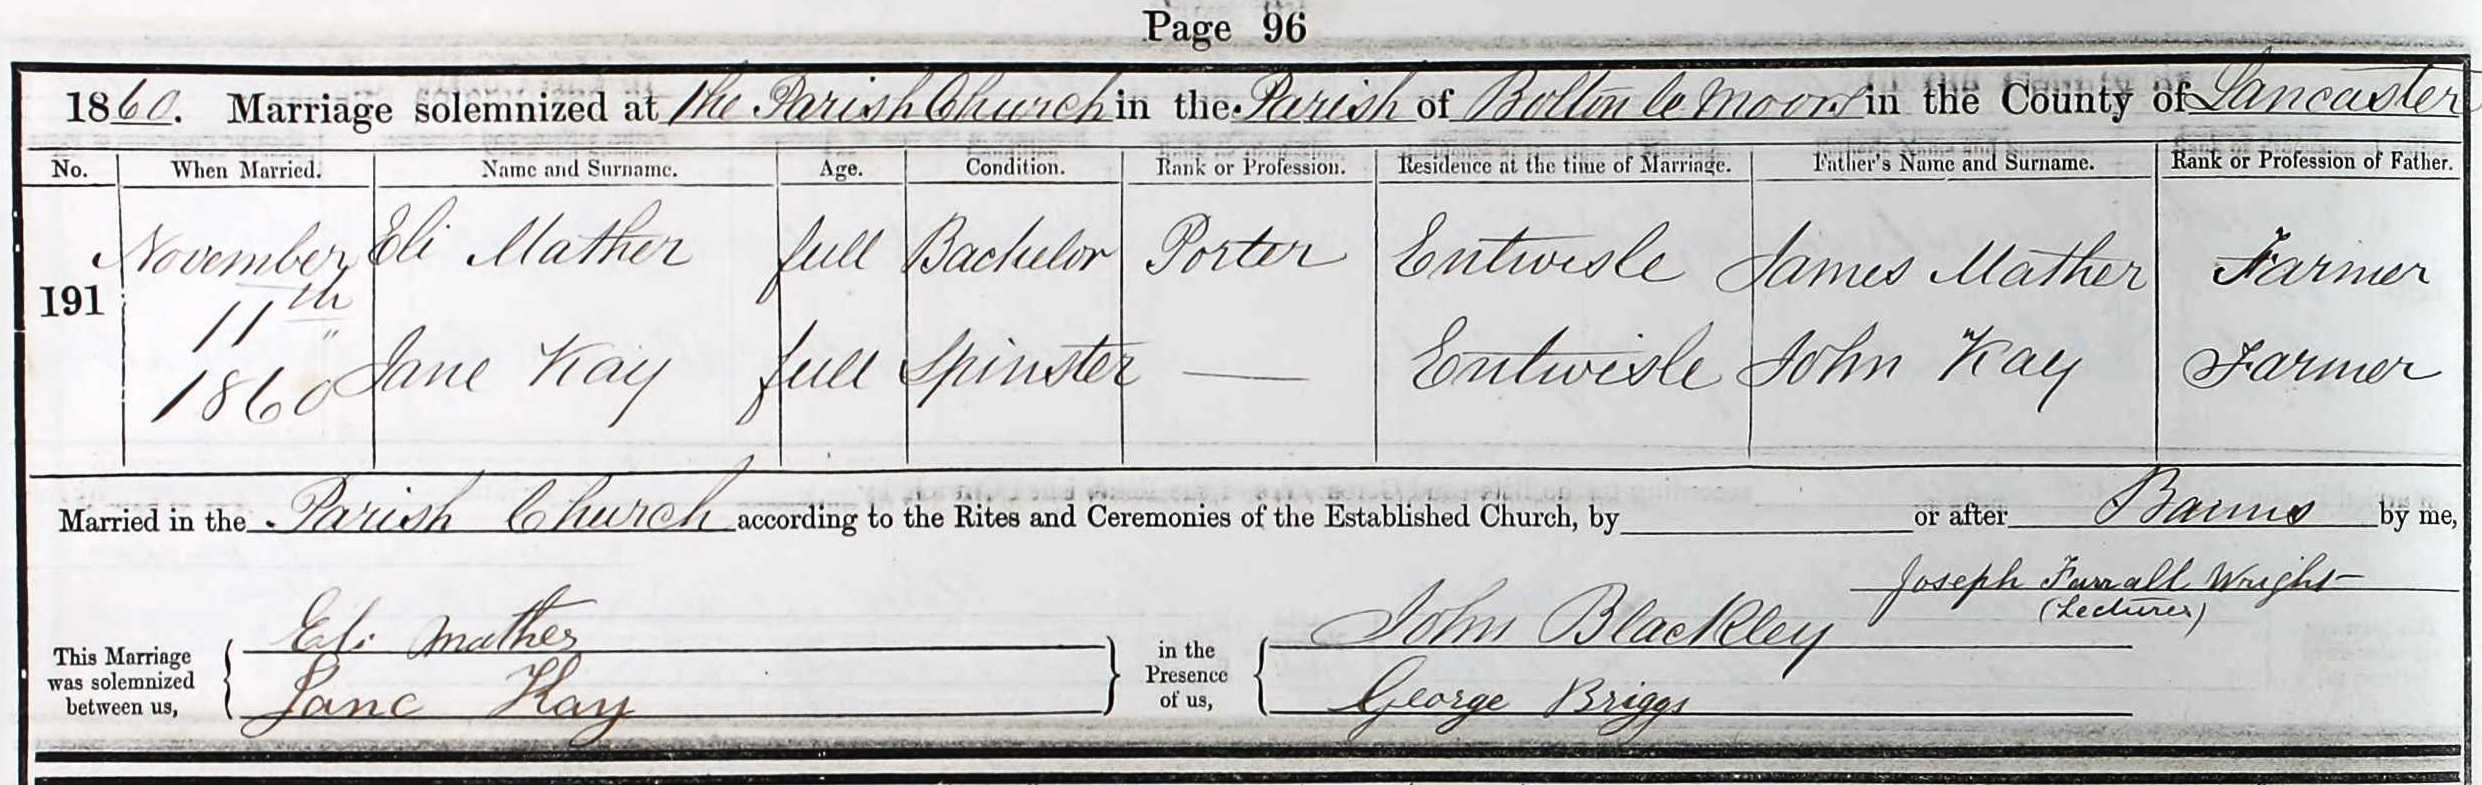 Page 96
1860. Marriage solemnized at The Parish Church in the Parish of Bolton le Moors in the County of Lancaster
No. When Married. Name and Surname. Age. Condition. Rank or Profession. Residence at the time of Marriage. Father's Name and Surname. Rank or Profession of Father.
November Eli Mather full Bachelor Porter Entwisle James Mather Farmer
191 11th
1860 Jane Kay full Spinster — Entwisle John Kay Farmer
Married in the Parish Church according to the Rites and Ceremonies of the Established Church, by or after Banns by me,
Joseph Farrall Wright
(Lecturer)
This Marriage was solemnized between us, { Eli Mather } in the Presence of us, { John Blackley
Jane Kay George Briggs